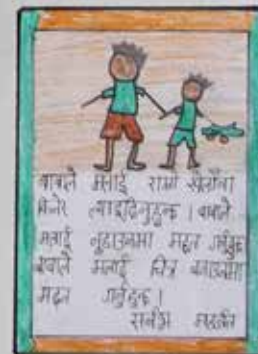 बाबाले मलाई राम्रो खेलौना
किनेर ल्याइदिनुहुन्छ । बाबाले
मलाई नुहाउनमा मद्दत गर्नुहुन्छ
बाबाले मलाई चित्र बनाउनमा
मद्दत गर्नुहुन्छ ।